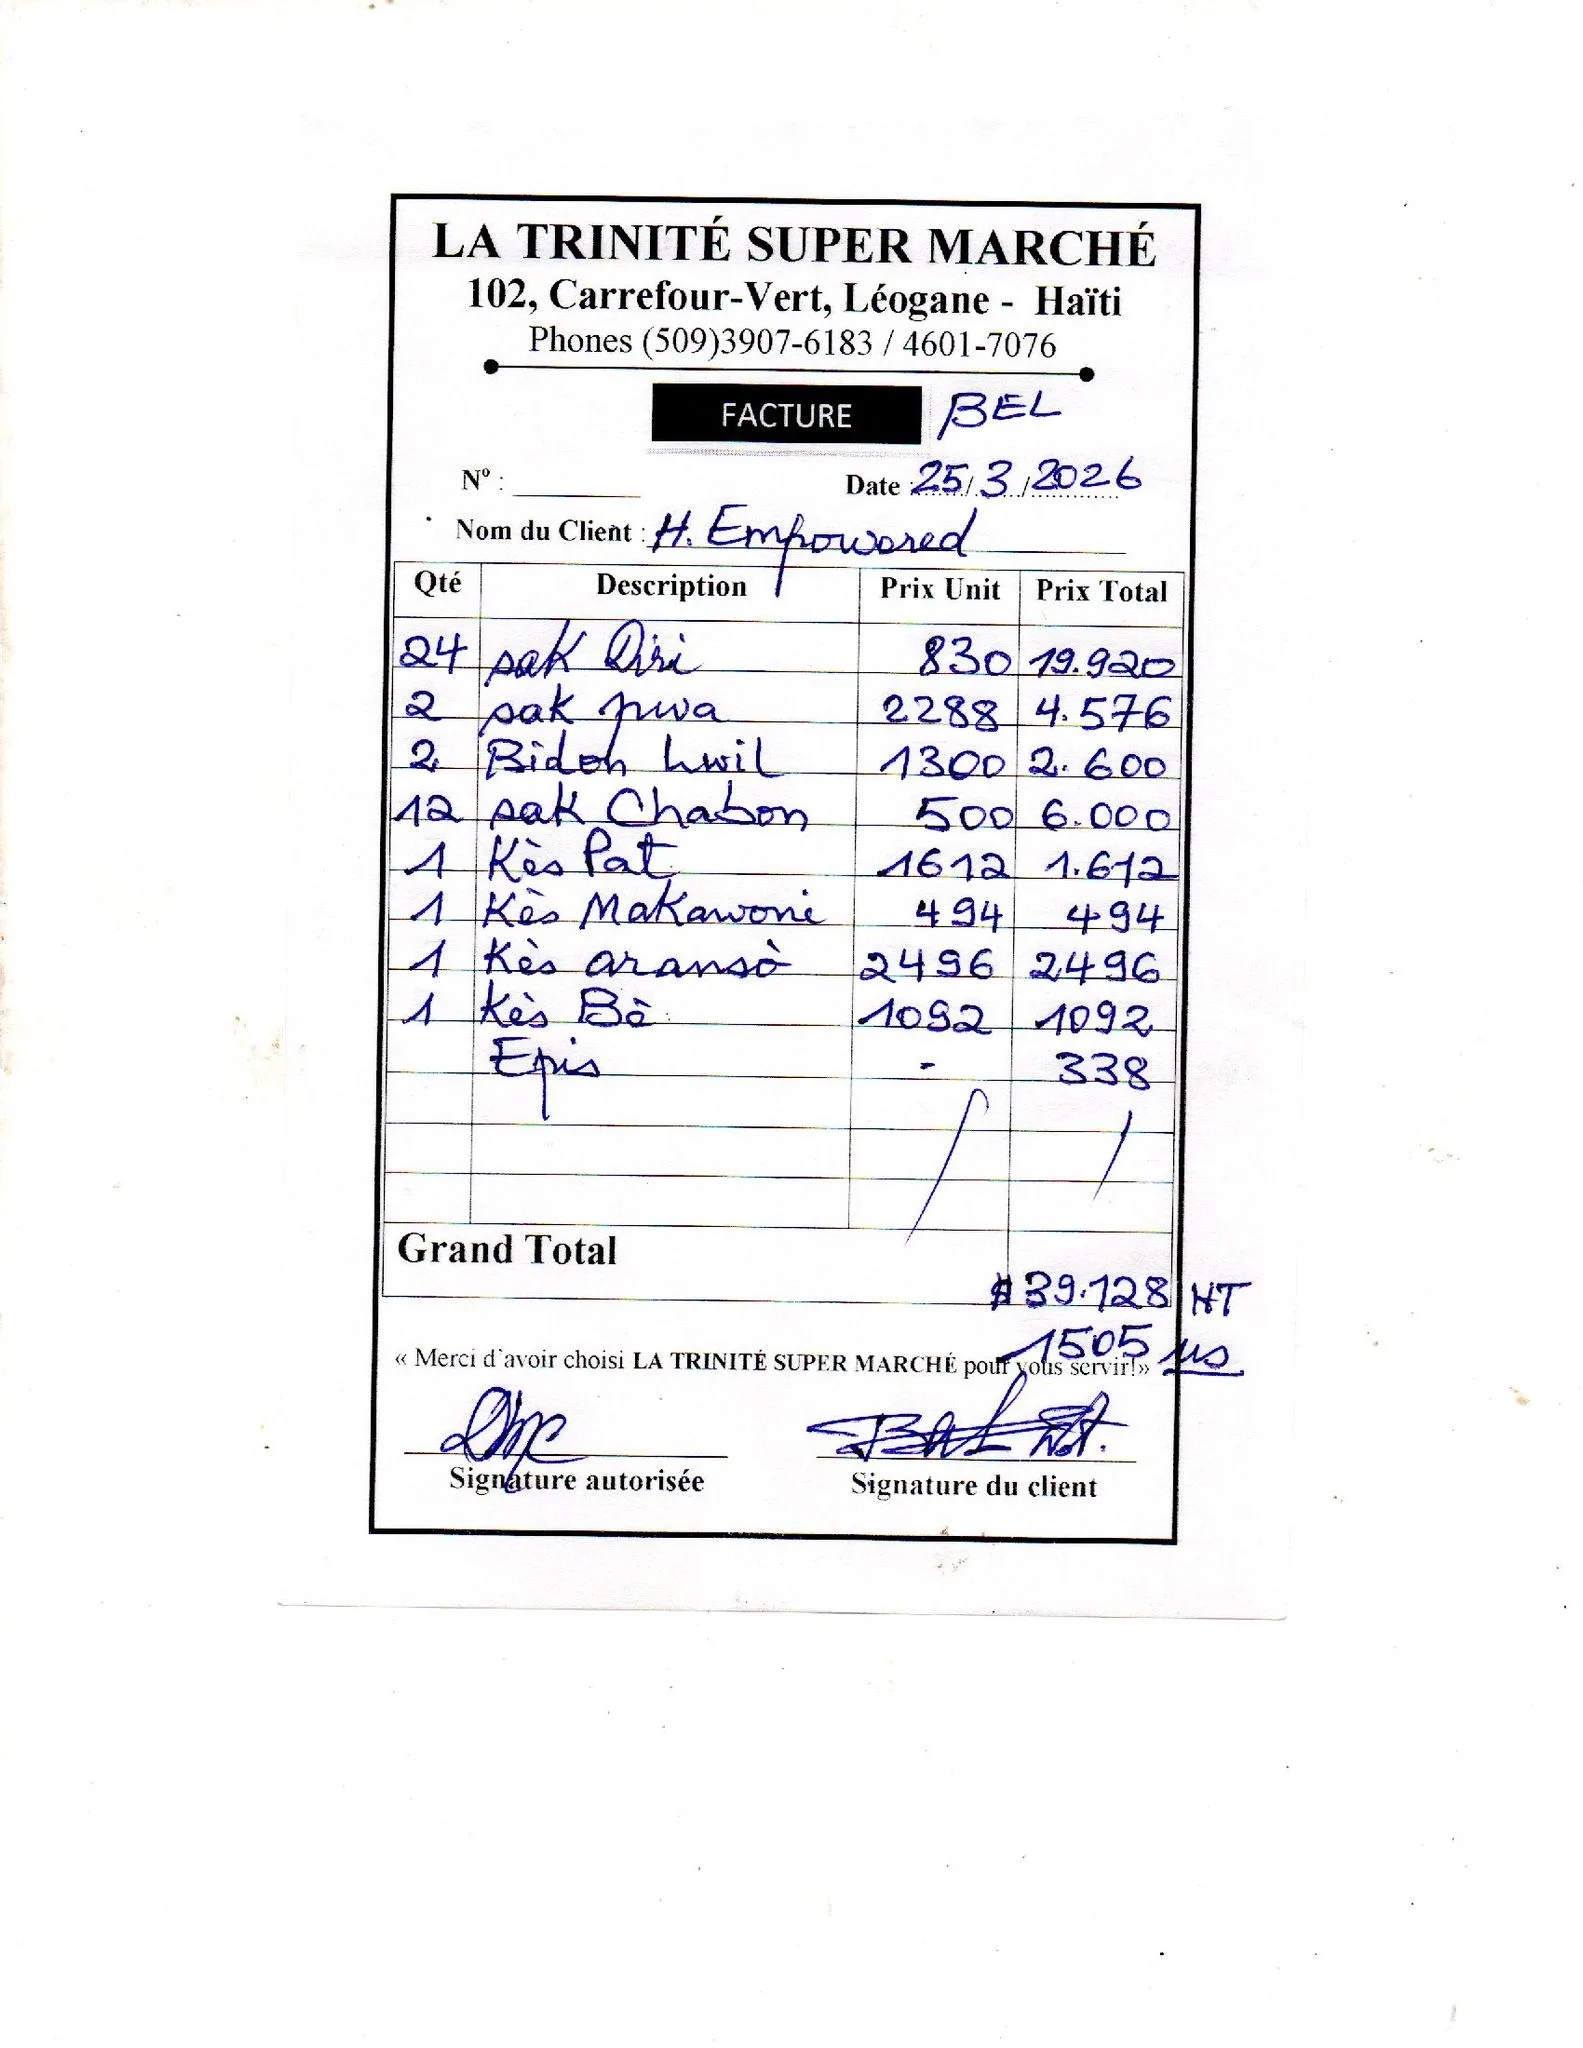 LA TRINITÉ SUPER MARCHÉ
102, Carrefour-Vert, Léogane - Haïti
Phones (509)3907-6183 / 4601-7076
FACTURE BEL
Nº : Date : 25/3/2026
Nom du Client : H. Empowered
Qté Description Prix Unit Prix Total
24 sak Diri 830 19.920
2 sak pwa 2288 4.576
2 Bidon lwil 1300 2.600
12 sak Chabon 500 6.000
1 Kès Pat 1612 1.612
1 Kès Makawoni 494 494
1 Kès aransò 2496 2496
1 Kès Bè 1092 1092
Epis - 338
Grand Total
$39.128 HT
1505 us
« Merci d'avoir choisi LA TRINITÉ SUPER MARCHÉ pour vous servir!»
Signature autorisée Signature du client